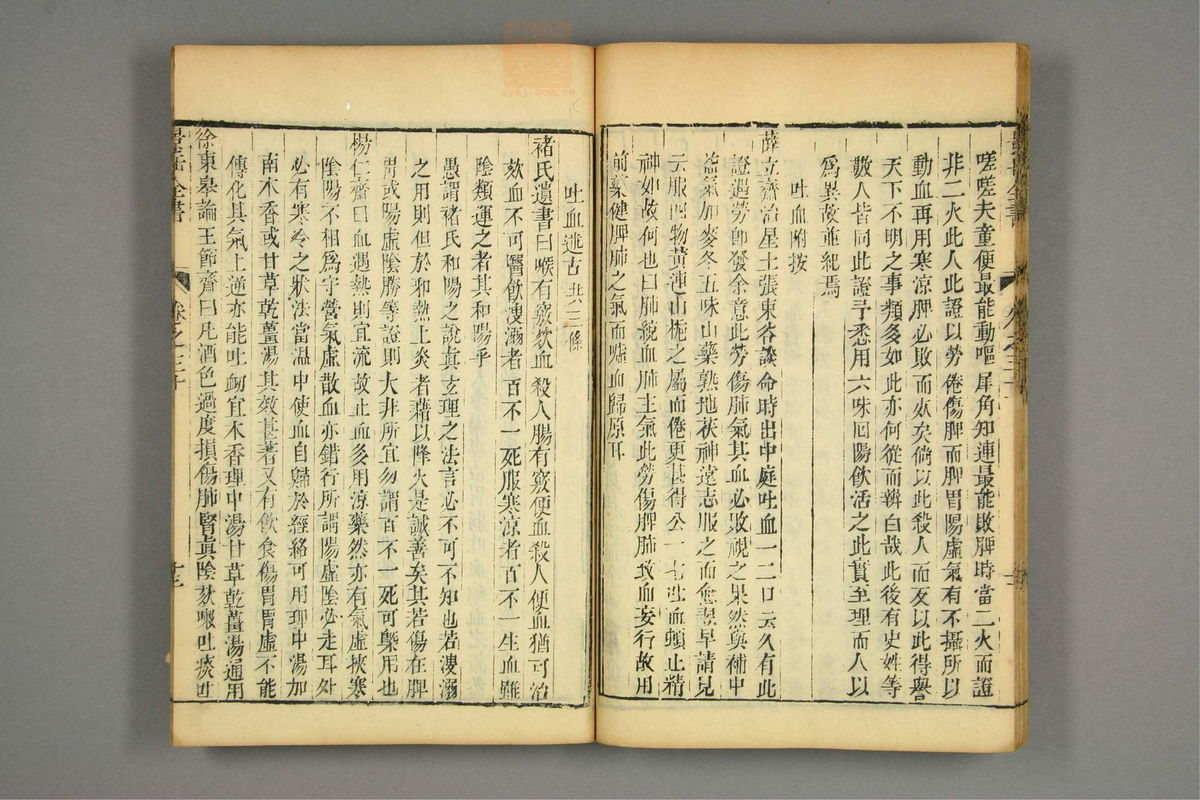 嗟嗟夫童便最能動嘔犀角知連最能敗脾時當二火而證
非二火此人此證以勞倦傷脾而脾胃陽虛氣有不攝所以
動血再用寒涼脾必敗而死矣倘以此殺人而反以此得譽
天下不明之事類多如此亦何從而辨白哉此後有史姓等
數人皆同此證予悉用六味回陽飲活之此實至理而人以
爲異故並紀焉
吐血附按
薛立齋治星士張東谷談命時出中庭吐血一二口云久有此
證遇勞卽發余意此勞傷肺氣其血必散視之果然與補中
益氣加麥冬五味山藥熟地茯神遠志服之而愈翌早請見
云服四物黃連山梔之屬而倦更甚得公一七吐血頓止精
神如故何也曰肺統血肺主氣此勞傷脾肺致血妄行故用
前藥健脾肺之氣而噓血歸原耳
吐血述古共三條
褚氏遺書曰喉有竅欬血殺人腸有竅便血殺人便血猶可治
欬血不可醫飲溲溺者百不一死服寒涼者百不一生血雖
陰類運之者其和陽乎
愚謂褚氏和陽之說真玄理之法言必不可不知也若溲溺
之用則但於邪熱上炎者藉以降火是誠善矣其若傷在脾
胃或陽虛陰勝等證則大非所宜勿謂百不一死可槩用也
楊仁齋曰血遇熱則宜流故止血多用涼藥然亦有氣虛挾寒
陰陽不相爲守營氣虛散血亦錯行所謂陽虛陰必走耳外
必有寒冷之狀法當温中使血自歸於經絡可用理中湯加
南木香或甘草乾薑湯其效甚著又有飲食傷胃胃虛不能
傳化其氣上逆亦能吐衂宜木香理中湯甘草乾薑湯通用
徐東皋論王節齋曰凡酒色過度損傷肺腎真陰欬嗽吐痰吐
景岳全書
卷之三十